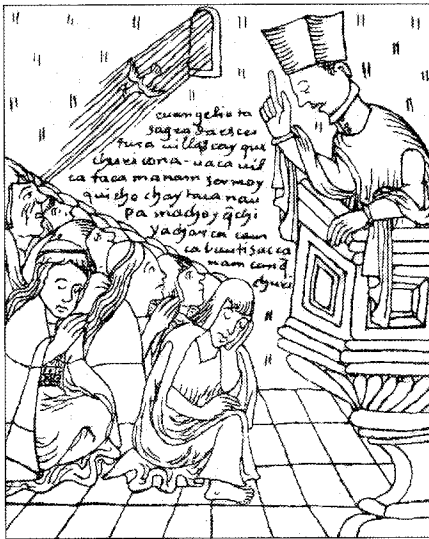 euangelio ta
sagrada escri
tura uillascay qui
churecona - uaca uil
ca taca manam sermoy
quicho chaytaca nau
pa machoy qchi
yacharca cam
ca bautisasca
mam canq
churi